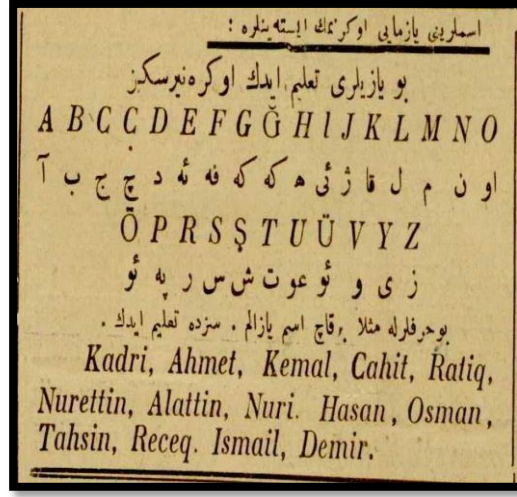 اسملرینی یازمایی اوكرنمك ایسته‌ینلره :
بو یازیلری تعلیم ایدك اوكره‌نیرسكیز
A B C Ç D E F G Ğ H I J K L M N O
آ ب ج چ د ئه فه كه كه ه ئی ژ قا ل م ن او
Ö P R S Ş T U Ü V Y Z
ئو په ر س ش ت عو ئو و ی ز
بوحرفلرله مثلا برقاچ اسم یازالم . سزده تعلیم ایدك .
Kadri, Ahmet, Kemal, Cahit, Ratiq,
Nurettin, Alattin, Nuri. Hasan, Osman,
Tahsin, Receq. Ismail, Demir.